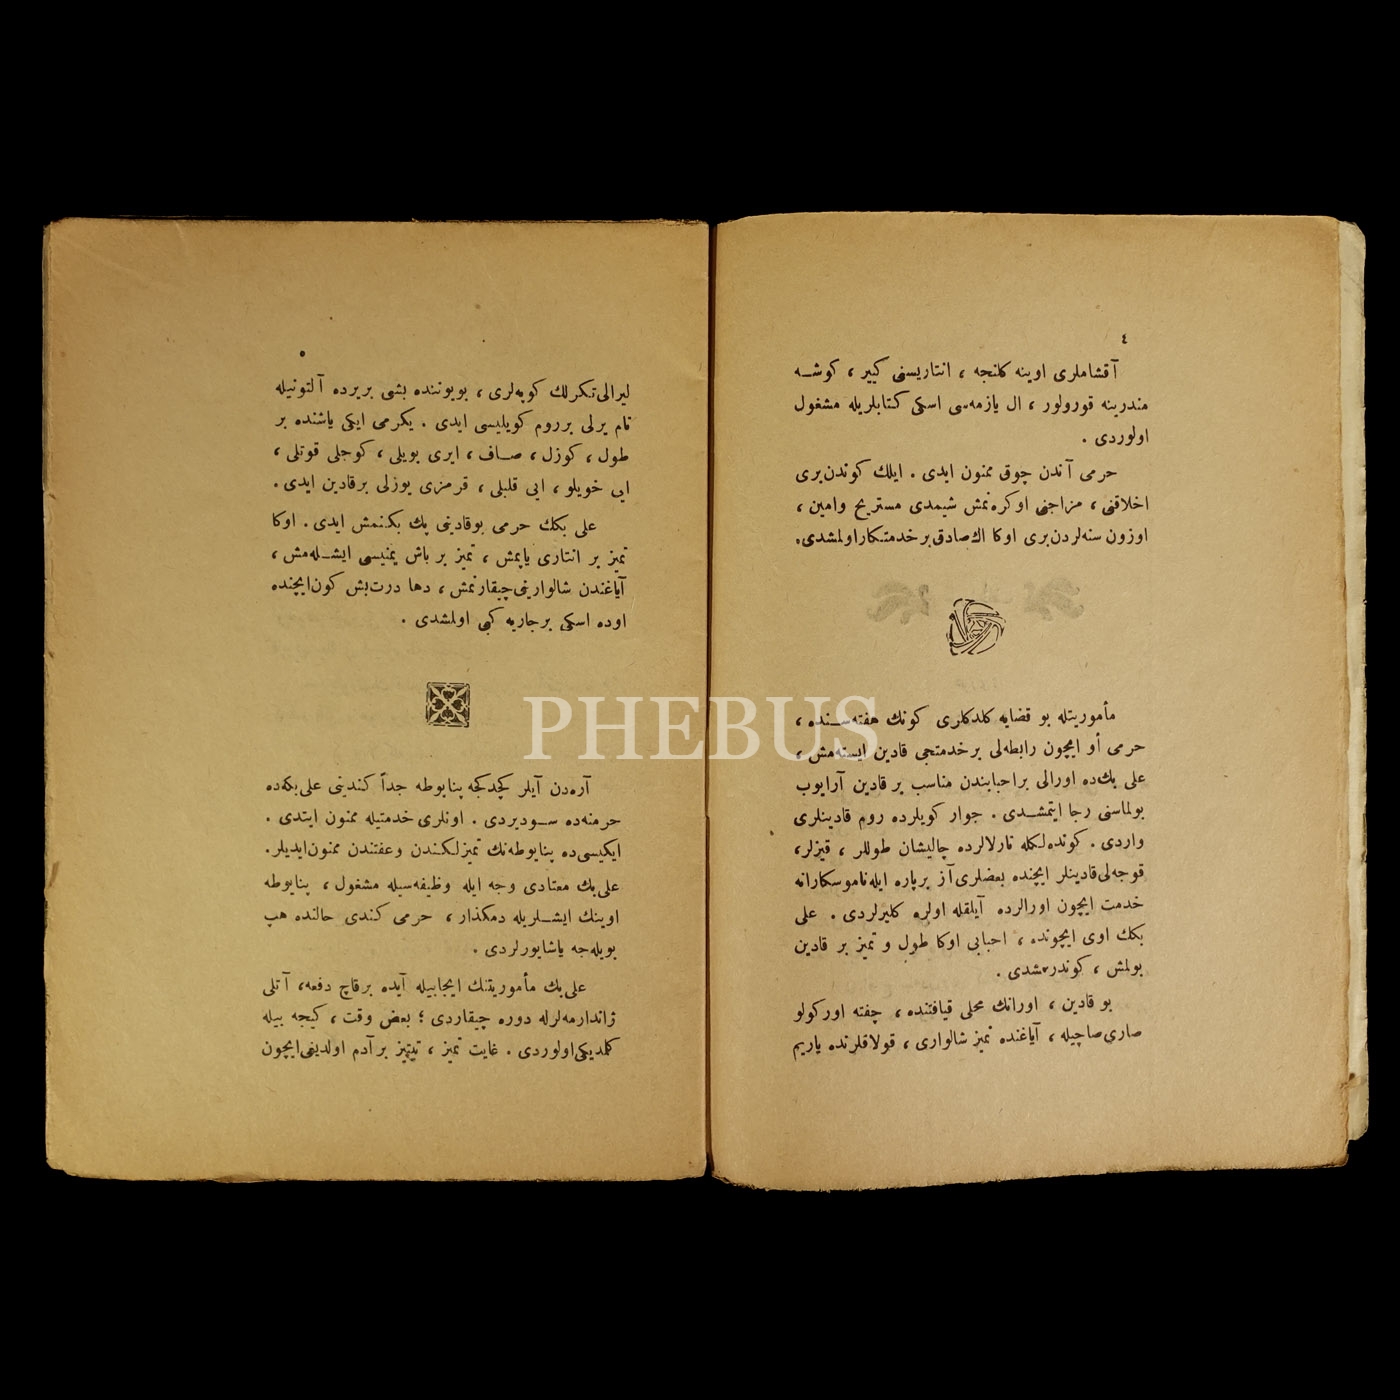 ٤
آقشاملری اوینه كلنجه ، انتاریسنی كییر ، كوشــه
مندرینه قورولور ، ال یازمه‌سی اسكی كتابلریله مشغول
اولوردی .
حرمی آندن چوق ممنون ایدی . ایلك كوندن‌بری
اخلاقنی ، مزاجنی اوكره‌نمش شیمدی مستریح وامین ،
اوزون سنه‌لردن‌بری اوكا اك‌صادق‌برخدمتكاراولمشدی.
مأموریتله بو قضایه كلدكلری كونك هفته‌ســنده ،
حرمی أو ایچون رابطه‌لی برخدمتجی قادین ایسته‌مش ،
علی بك‌ده اورالی براحبابندن مناسب بر قادین آرایوب
بولماسنی رجا ایتمشــدی . جوار كویلرده روم قادینلری
واردی . كونده‌لكله تارلالرده چالیشان طوللر ، قیزلر،
قوجه‌لی‌قادینلر ایچنده بعضلری‌آز برپاره ایله‌ناموسكارانه
خدمت ایچون اورالرده آیلقله اولره كلیرلردی . علی
بكك اوی ایچونده ، احبابی اوكا طول و تمیز بر قادین
بولمش ، كوندرمشدی .
بو قادین ، اورانك محلی قیافتنده ، چفته اوركولو
صاری‌صاچیله ، آیاغنده تمیز شالواری ، قولاقلرنده یاریم
٥
لیرالی‌تكرلك كوپه‌لری ، بویوننده بشی بریرده آلتونیله
تام یرلی برروم كویلیسی ایدی . یكرمی ایكی یاشنده بر
طول ، كوزل ، صــاف ، ایری بویلی ، كوجلی قوتلی ،
ایی خویلو ، ایی قلبلی ، قرمزی یوزلی برقادین ایدی .
علی بكك حرمی بوقادینی پك بكنمش ایدی . اوكا
تمیز بر انتاری یاپمش ، تمیز بر باش یمنیسی ایشــله‌مش ،
آیاغندن شالوارینی‌چیقارتمش ، دها درت‌بش كون‌ایچنده
اوده اسكی برجاریه كبی اولمشدی .
PHEBUS
آره‌دن آیلر كچدكجه پنایوطه جداً كندینی علی‌بكه‌ده
حرمنه‌ده ســودیردی . اونلری خدمتیله ممنون ایتدی .
ایكیسی‌ده پنایوطه‌نك تمیزلكندن وعفتندن ممنون‌ایدیلر.
علی‌بك معتادی وجه ایله وظیفه‌سیله مشغول ، پنایوطه
اوینك ایشــلریله دمكذار ، حرمی كندی حالنده هپ
بویله‌جه یاشایورلردی .
علی‌بك مأموریتنك ایجابیله آیده برقاچ دفعه، آتلی
ژاندارمه‌لرله دوره چیقاردی ؛ بعض وقت ، كیجه بیله
كلمدیكی‌اولوردی . غایت تمیز ، تیتیز برآدم اولدیغی‌ایچون